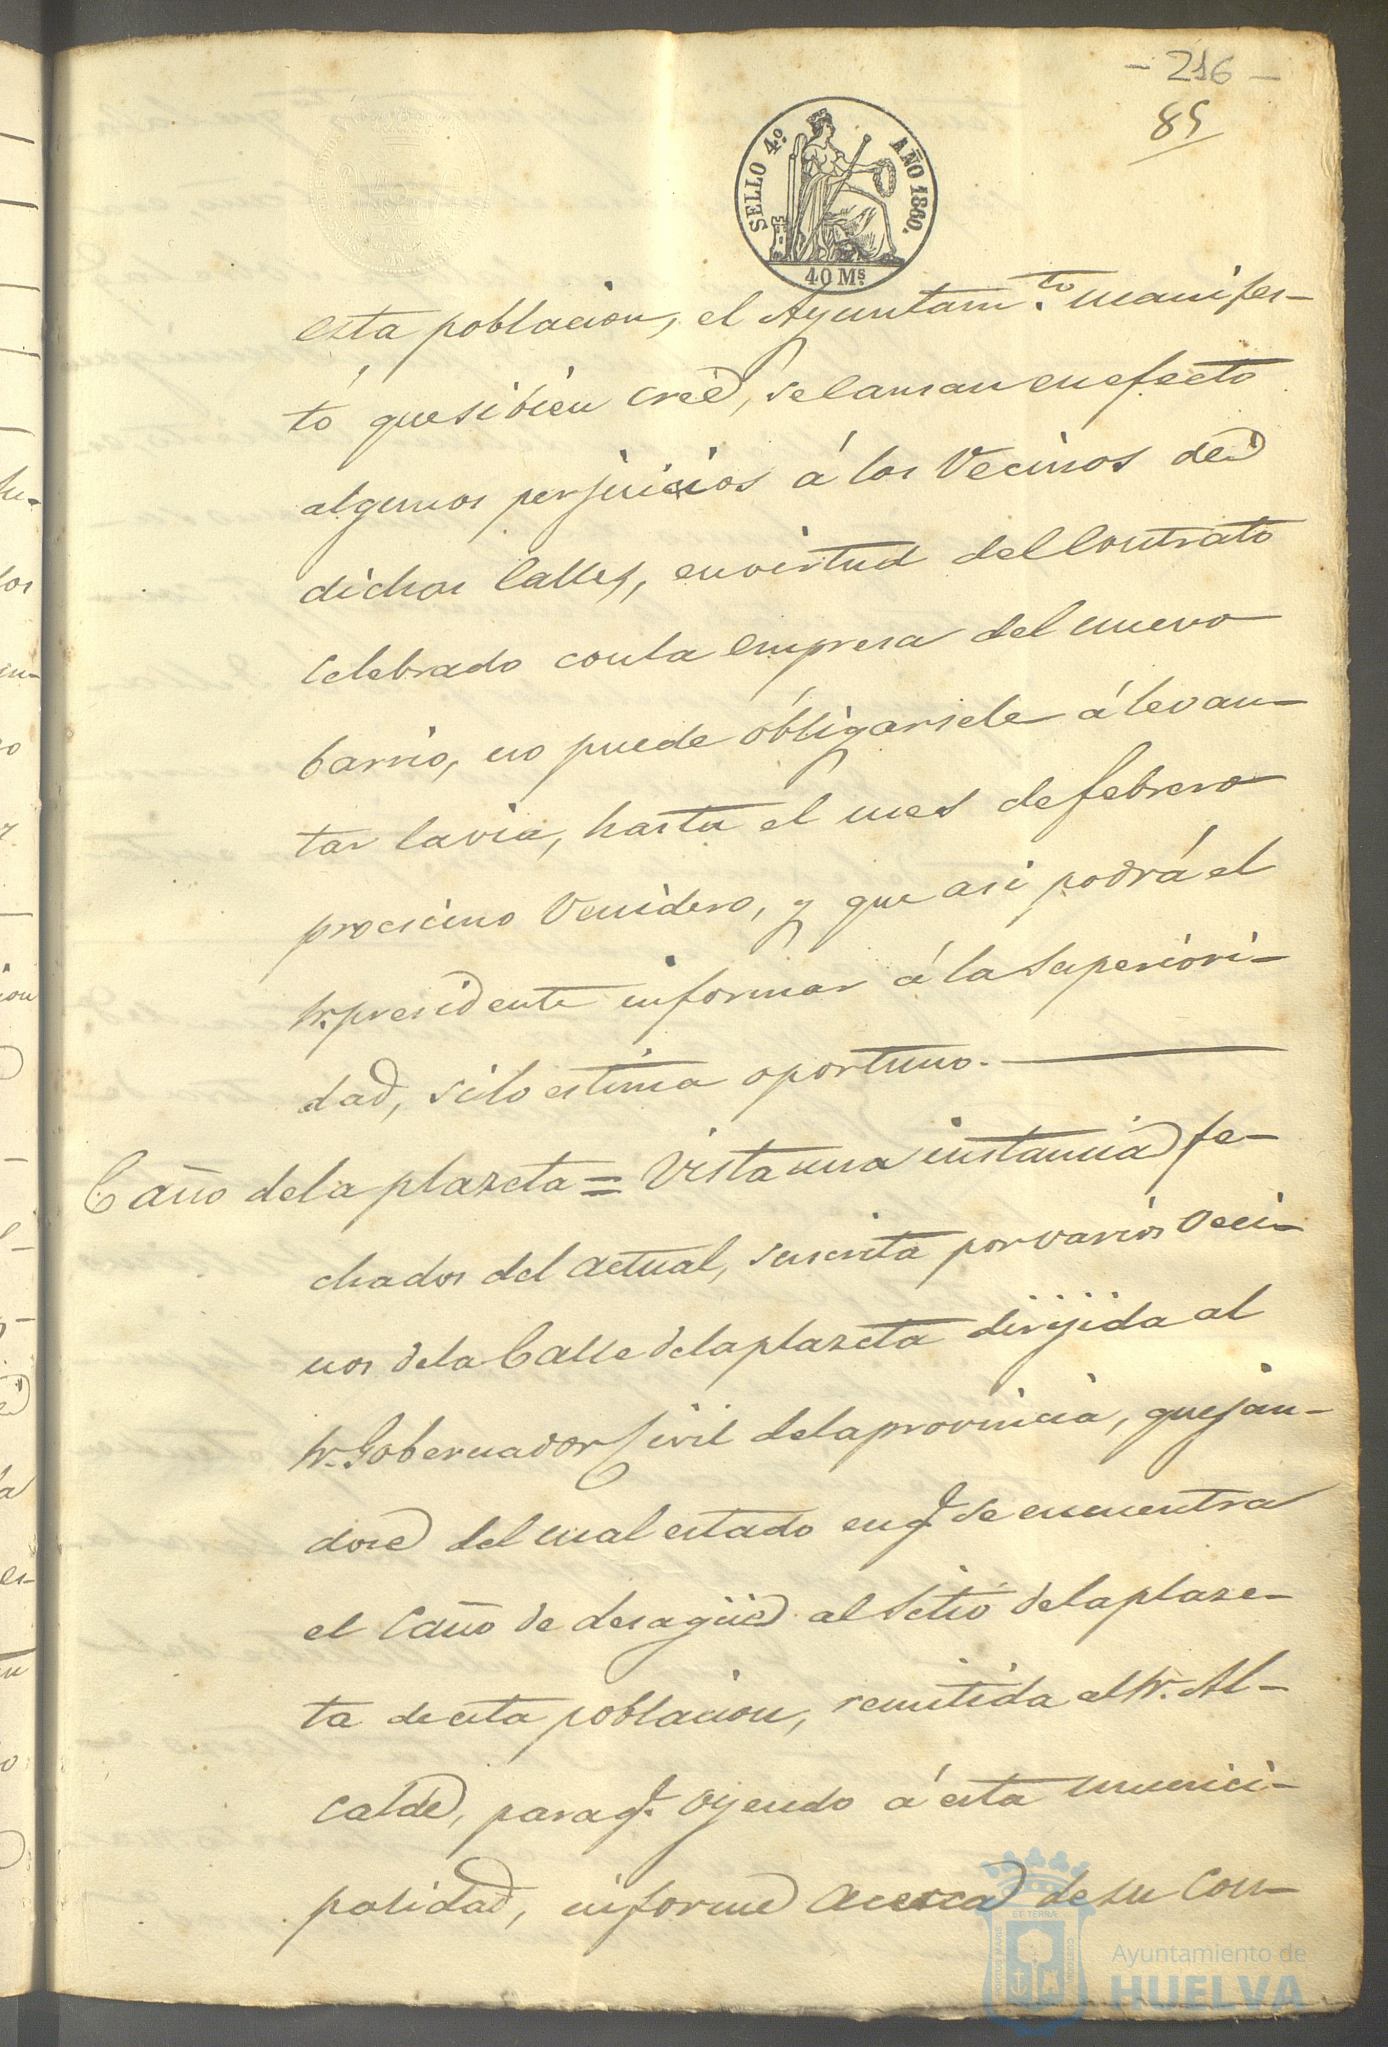 - 216 -
85
SELLO 4.º AÑO 1860.
40 Ms.
esta poblacion, el Ayuntam.to manifes-
tó que si bien cree, se causan en efecto
algunos perjuicios á los Vecinos de
dichas Calles, en virtud del Contrato
celebrado con la empresa del nuevo
barrio, no puede óbligarsele á levan-
tar la via, hasta el mes de febrero
procsimo Venidero, y que asi podrá el
Sr. presidente informar á la Superiori-
dad, si lo estima oportuno.
Caño de la plazeta = Vista una instancia fe-
chados del actual, suscrita por varios Veci-
nos de la Calle de la plazeta dirijida al
Sr. Gobernador Civil de la provincia, quejan-
dose del mal estado en q.e se encuentra
el Caño de desagüe al Sitio de la plaze-
ta de esta poblacion, remitida al Sr. Al-
calde, para q.e oyendo á esta munici-
palidad, informe acerca de su con-
Ayuntamiento de
HUELVA